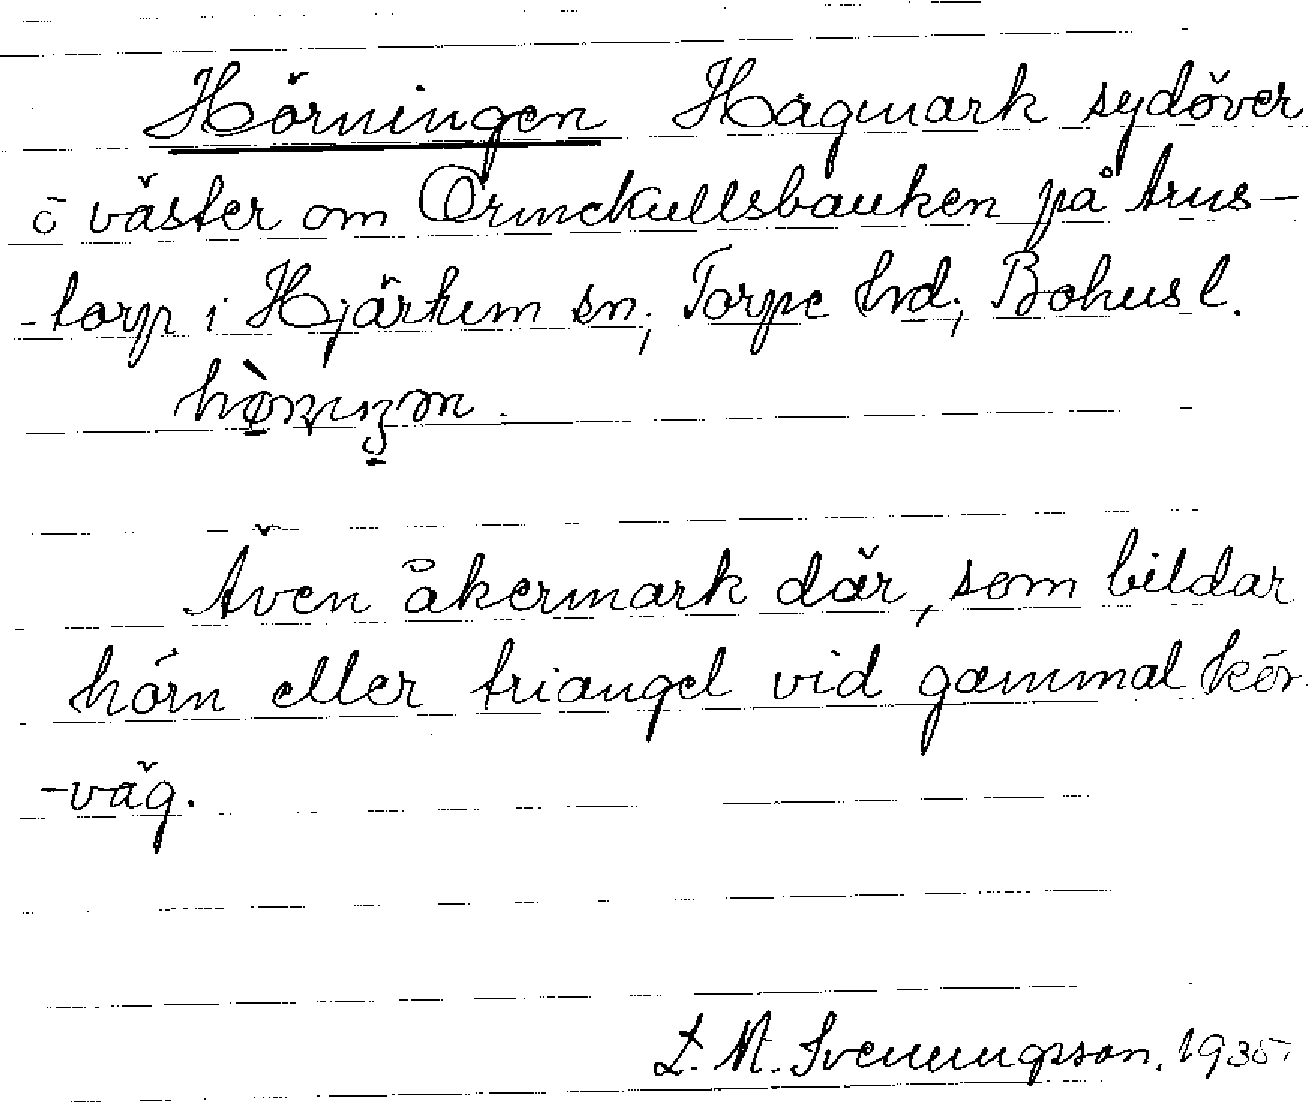 Hörningen Hagmark sydöver
o väster om Ormekullsbauken på Arus-
-torp i Hjärtum sn; Torpe hd; Bohusl.
Även åkermark där, som bildar
hörn eller triangel vid gammal kör-
-väg.
L. M. Svenungsson. 1935.